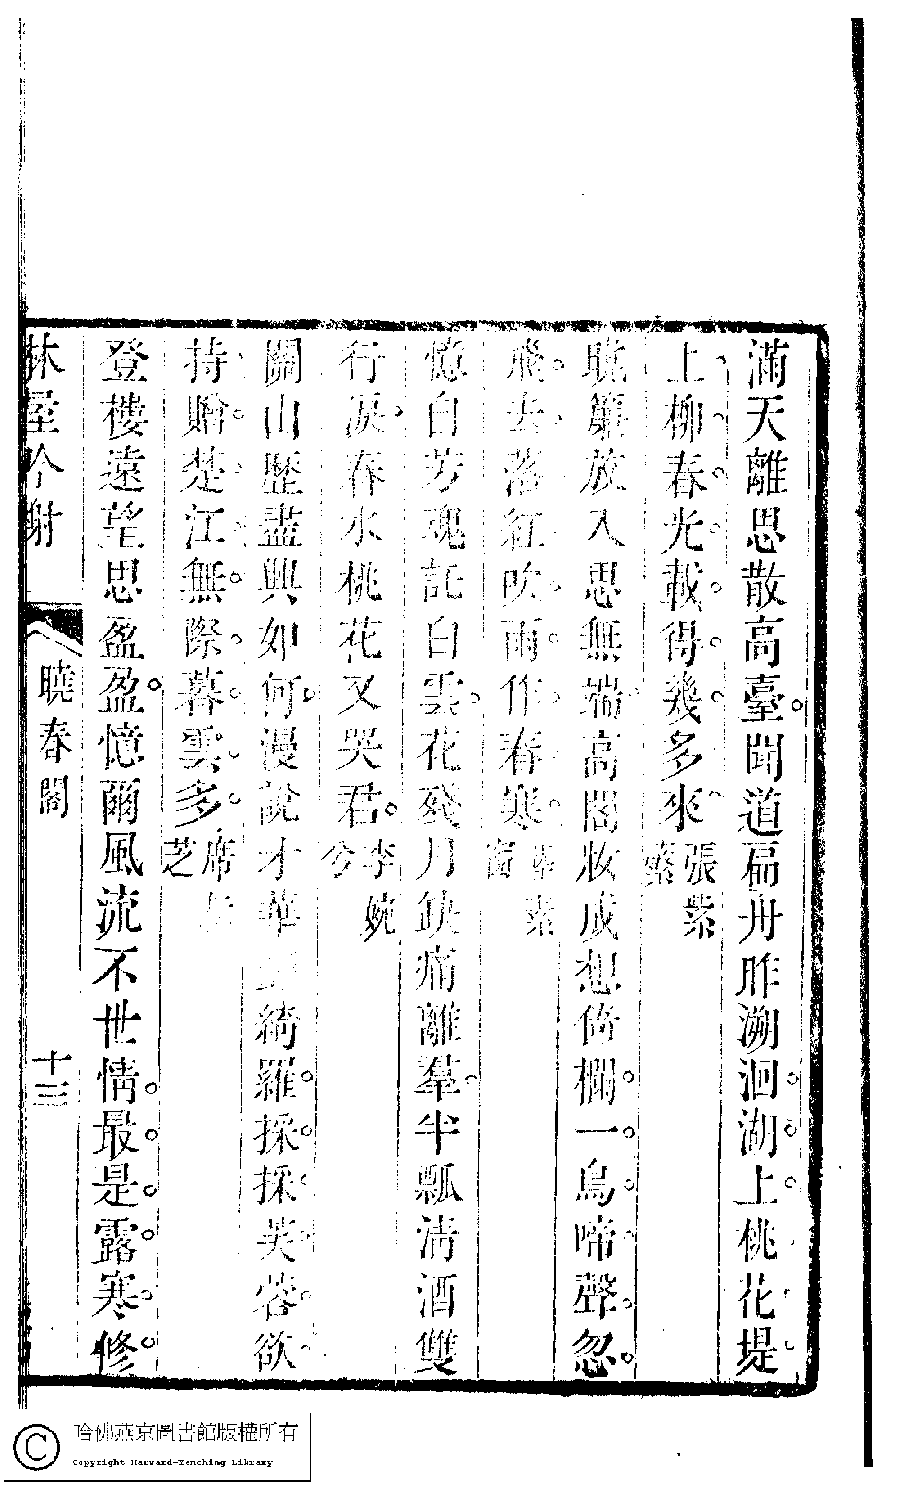 滿天離思散高臺聞道扁舟昨溯洄湖上桃花堤
上柳春光載得幾多來張紫蘩
曉簾放入思無端高閣妝成想倚欄一鳥啼聲忽
飛去落紅吹雨作春寒 素窗
憶自芳魂託白雲花殘月缺痛離羣半瓢清酒雙
行淚春水桃花又哭君李婉兮
關山歷盡興如何漫說才華 綺羅採採芙蓉欲
持贈楚江無際暮雲多席 芝
登樓遠望思盈盈憶爾風流不世情最是露寒修
林屋吟榭
曉春閣
十三
哈佛燕京圖書館版權所有
Copyright Harvard-Yenching Library